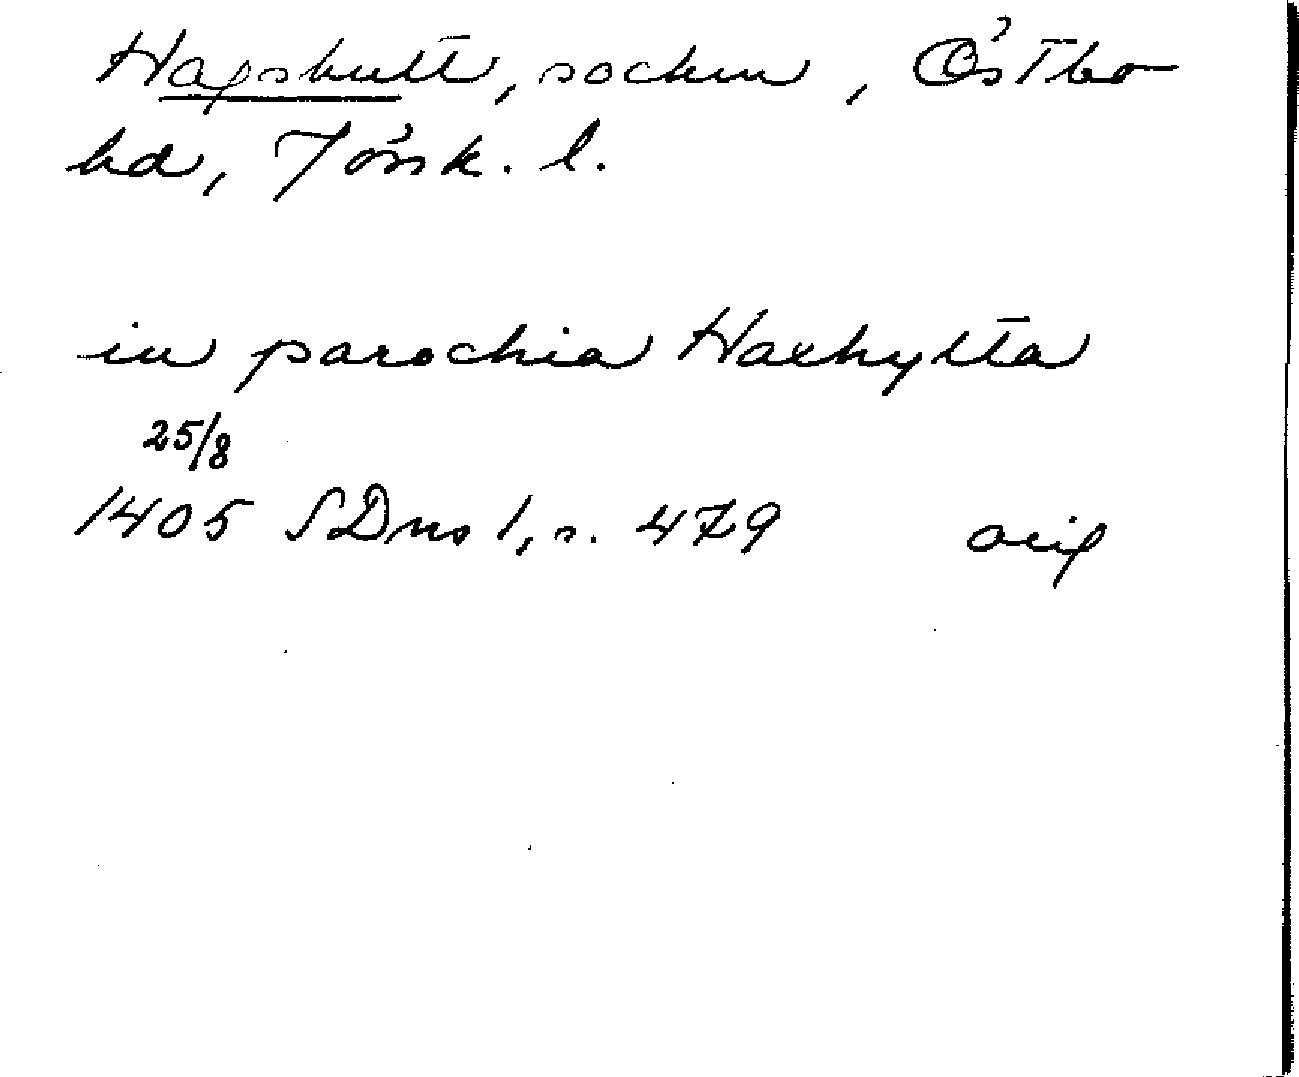 Hagshult, socken, Östbo
hd, Jönk. l.
in parochia Haxhylta
25/8
1405 SDns 1, s. 479 orig